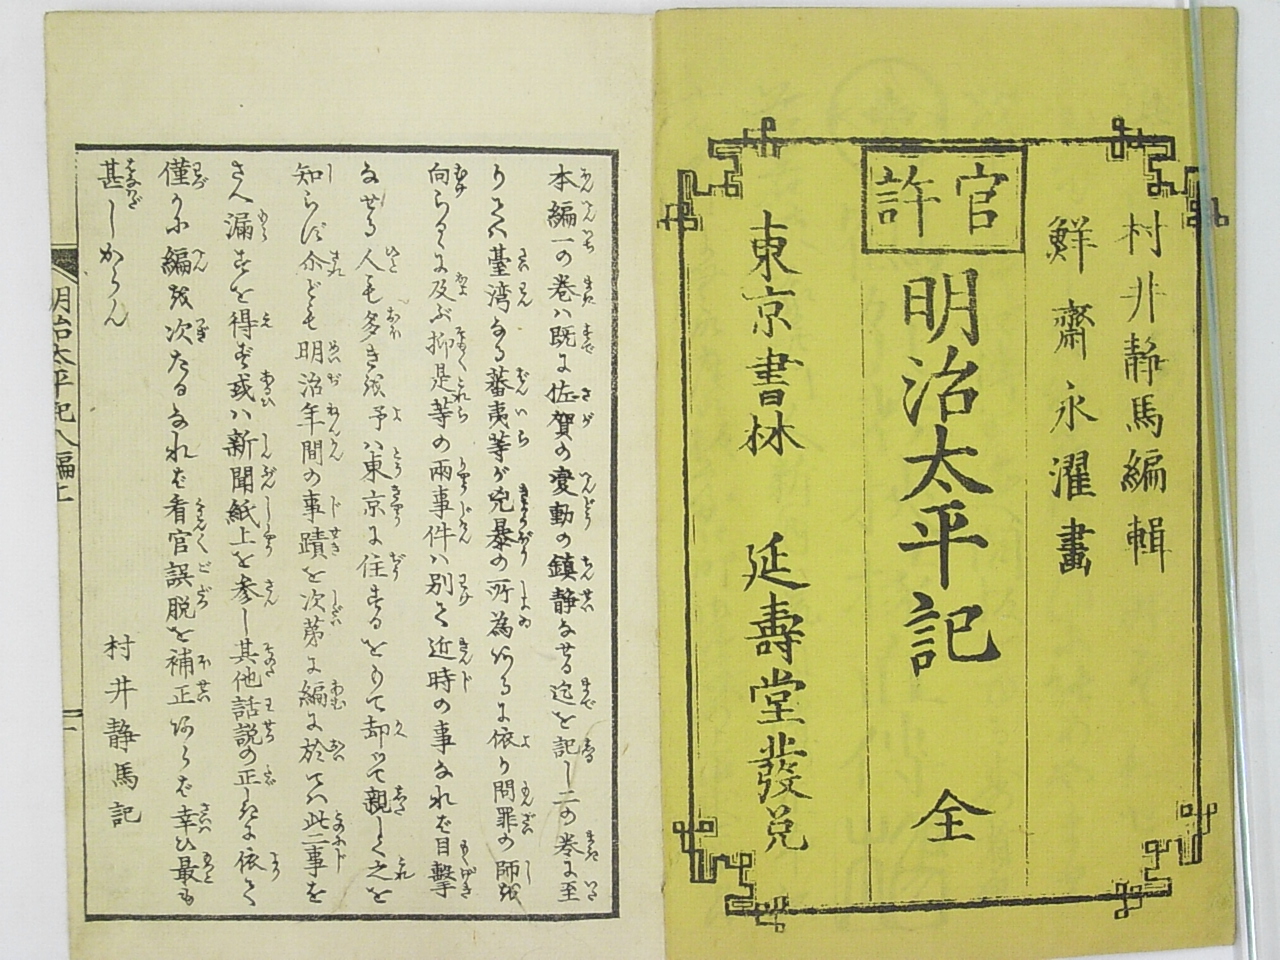 村井静馬編輯
鮮齋永濯畫
官許
明治太平記 全
東京書林 延壽堂發兌
本編一の巻ハ既に佐賀の変動の鎮静なせる迄を記し二の巻に至
りてハ臺湾なる蕃夷等が兇暴の所為あるに依り問罪の師を
向らるゝに及ぶ抑是等の兩事件ハ別て近時の事なれバ目擊
なせる人も多きを予ハ東京に住するをもて却ッて親しく之を
知らず尒ども明治年間の事蹟を次第に編に於てハ此二事を
さへ漏すを得ず或ハ新聞紙上を参し其他話説の正しきに依て
僅かに編を次たるなれバ看官誤脱を補正あらバ幸ひ最も
甚しからん
村井静馬記
明治太平記八編上